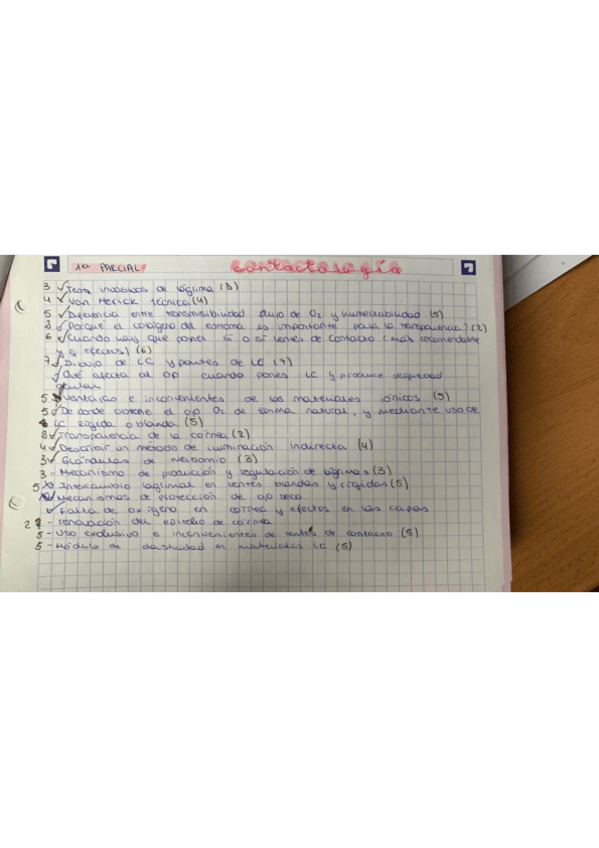 1er PARCIAL contactología
3 ✓ Tests invasivos de lágrima (3)
4 ✓ Van Herick técnica (4)
5 ✓ Diferencia entre transmisibilidad flujo de O2 y humectabilidad (5)
2 ✓ Porque el colágeno del estroma es importante para la transparencia? (2)
6 ✓ Cuando hay que poner o si lentes de contacto (mas recomendable
y q efectos) (6)
7 ✓ Dibujo de LC y partes de LC (7)
✓ Qué afecta al ojo cuando pones LC y produce sequedad
ocular
5 ventajas e inconvenientes de los materiales iónicos (5)
5 ✓ De donde obtiene el ojo O2 de forma natural, y mediante uso de
LC rígida o blanda (5)
2 ✓ Transparencia de la córnea (2)
4 ✓ Describir un método de iluminación indirecta (4)
3 ✓ Glándulas de meibomio (3)
3 - Mecanismo de producción y regulación de lágrimas (3)
5 Intercambio lagrimal en lentes blandas y rígidas (5)
Mecanismos de protección de ojo seco
✓ Falta de oxígeno en córnea y efectos en las capas
2 - renovación del epitelio de córnea
5 - Uso exclusivo e inconvenientes de lentes de contacto (5)
5 - Módulo de elasticidad en materiales LC (5)